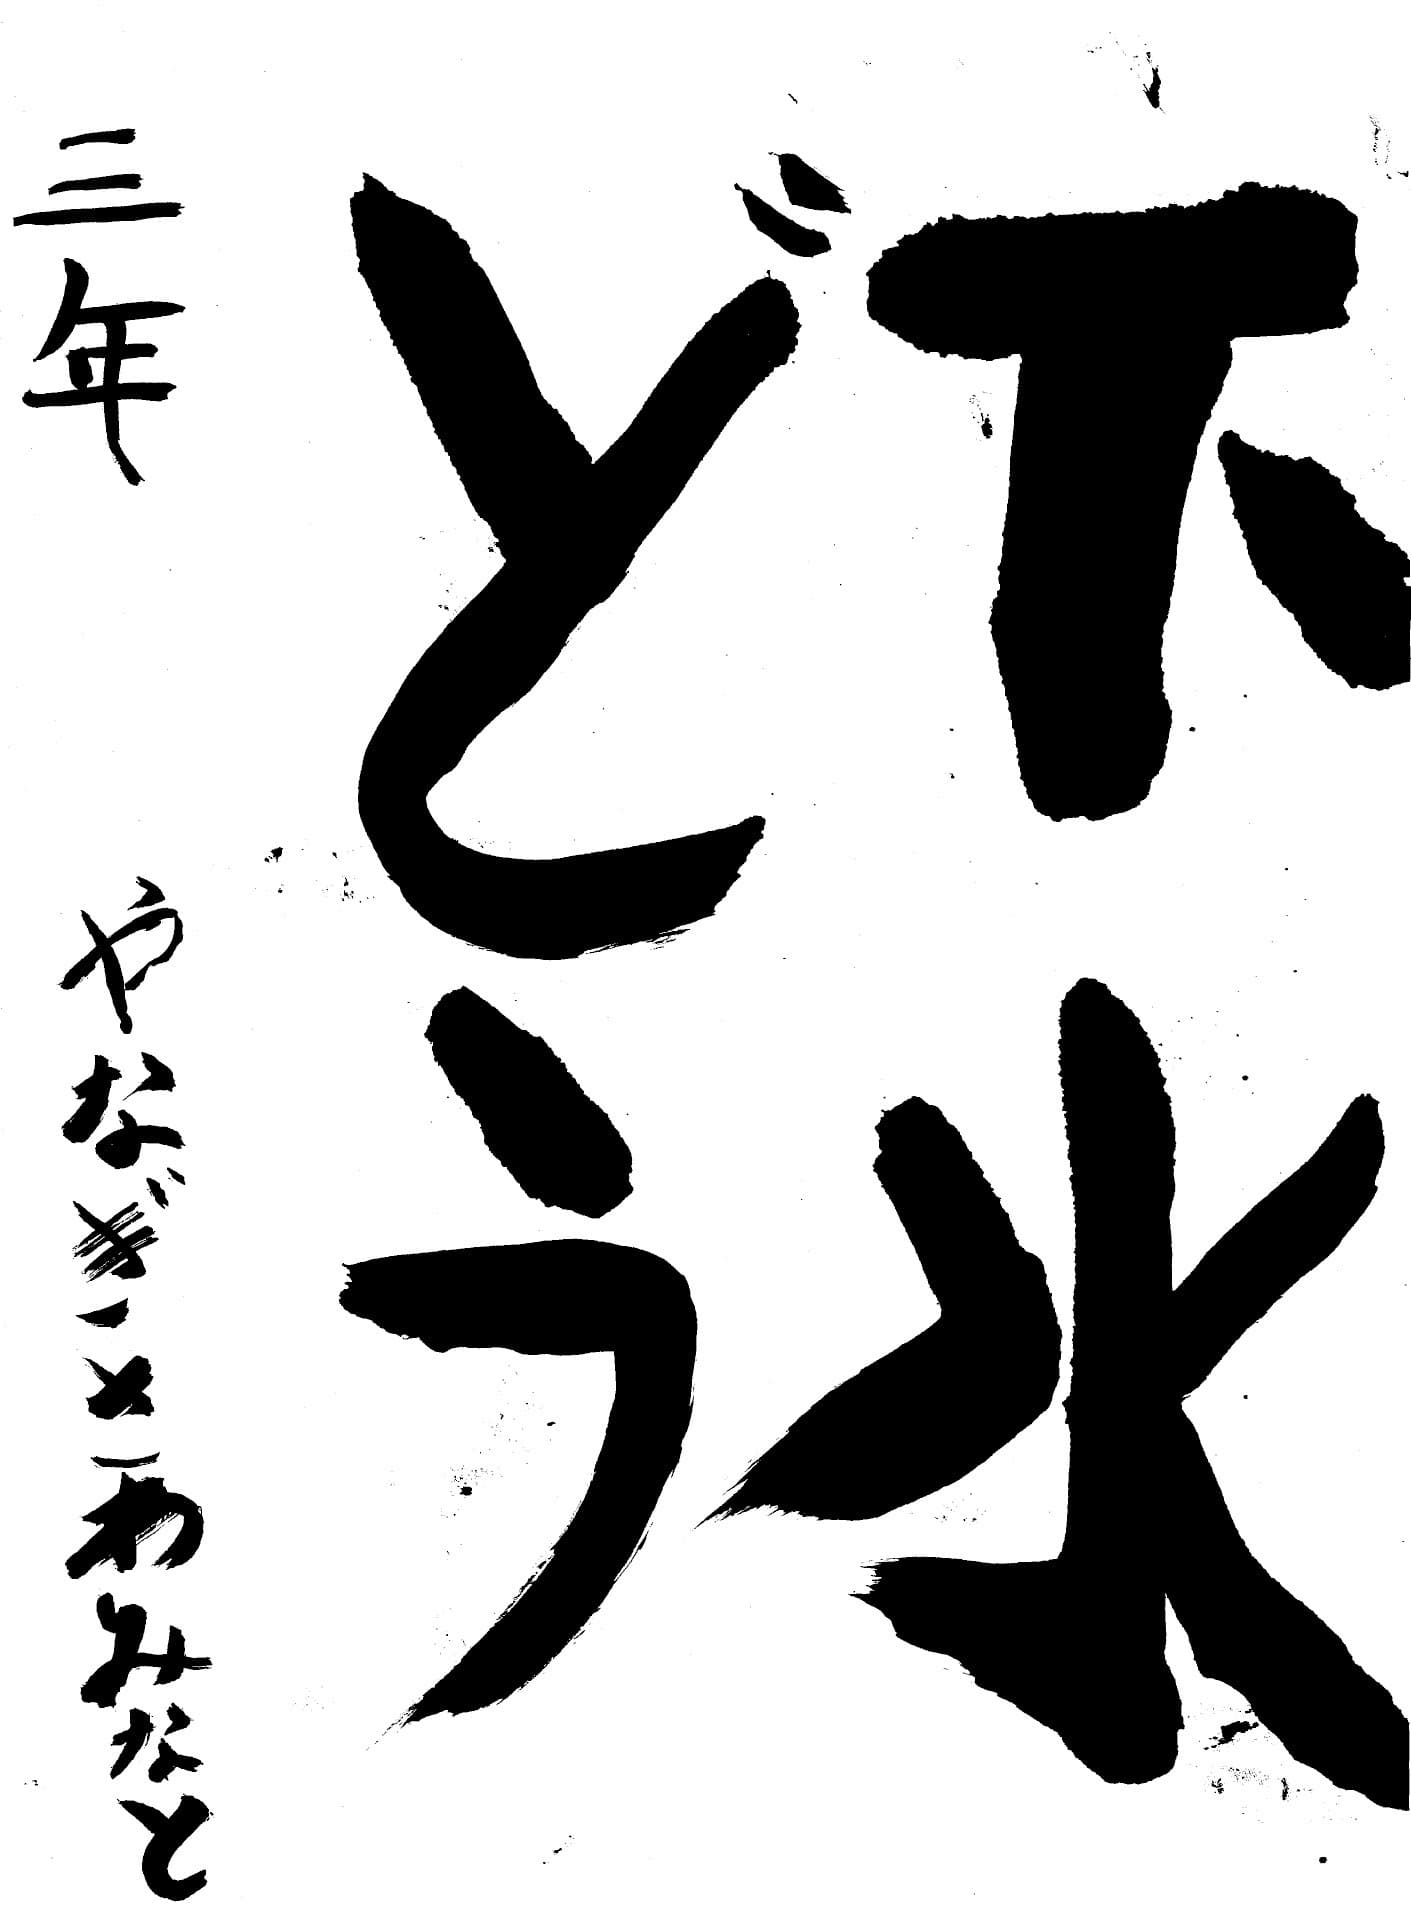 下水
どう
三年 やなぎさわみなと